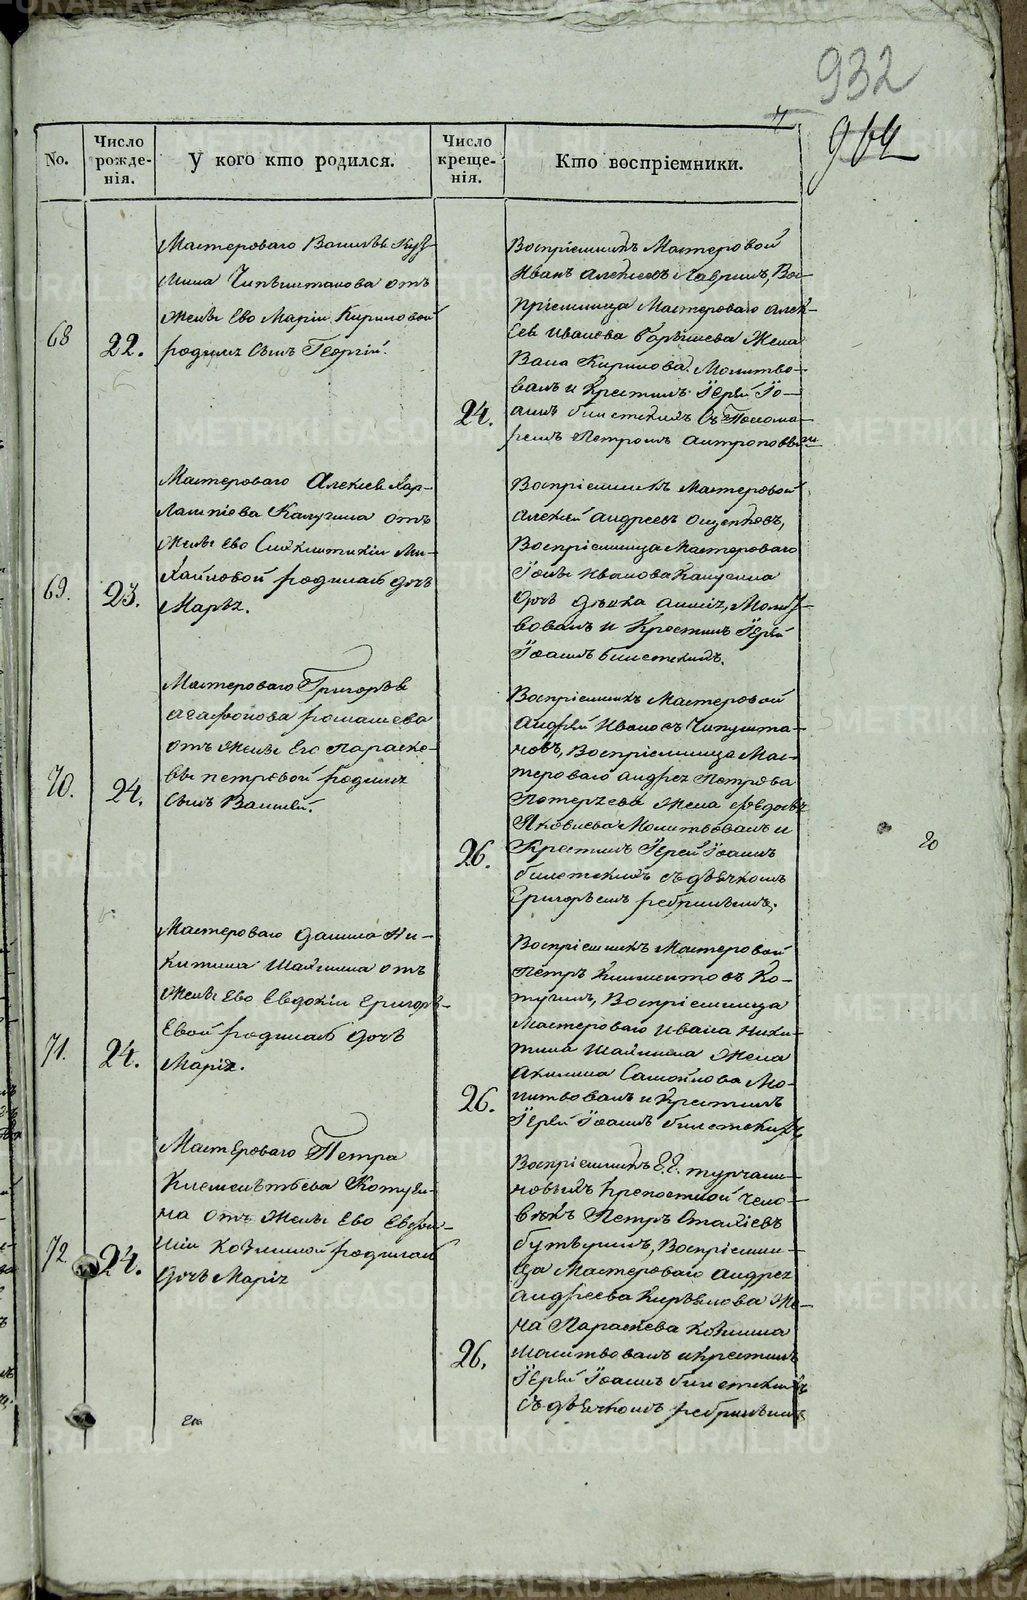 932
964
No.
Число рожде-нія.
У кого кто родился.
Число креще-нія.
Кто воспріемники.
68
22.
Мастероваго Василья Куз-
мина Чипуштанова отъ
жены Ево Маріи Кириловой
родился сынъ Георгій.
24.
Воспріемникъ Мастеровой
Иванъ Алексеевъ Лавринъ, Вос-
пріемница Мастероваго Алек-
сея Иванова жена
Кирилова. Молитво-
валъ и крестилъ Іерей Іо-
аннъ Бисетскихъ съ Понома-
ремъ Петромъ Антроповымъ
69.
23.
Мастероваго Алексея Хар-
лампіева Калугина отъ
жены Ево Синклитикіи Ми-
хайловой родилась дочь
Марѳа.
Воспріемникъ Мастеровой
Алексей Андреевъ
Воспріемница Мастероваго
Иванова Калугина
дочь девка Анисія, Молит-
вовалъ и крестилъ Іерей
Іоаннъ Бисетскихъ.
70.
24.
Мастероваго Григорья
Агафонова Ромашева
отъ жены Его Параске-
вы Петровой родился
сынъ Василей.
26.
Воспріемникъ Мастеровой
Андрей Ивановъ Чипушта-
новъ, Воспріемница Мас-
тероваго Андрея Петрова
Потеряева жена Федосья
Яковлева Молитвовалъ и
Крестилъ Іерей Іоаннъ
Бисетскихъ съ дьячкомъ
Григорьемъ Ребринымъ.
71.
24.
Мастероваго Данила Ни-
китина Шапшина отъ
жены Ево Евдокіи Григорь-
евой родилась дочь
Марія.
26.
Воспріемникъ Мастеровой
Петръ Климентовъ Ко-
тугинъ, Воспріемница
Мастероваго Ивана Ники-
тина Шапшина жена
Акилина Самойлова Мо-
литвовалъ и крестилъ
Іерей Іоаннъ Бисетскихъ
72
24.
Мастероваго Петра
Клементьева Котуги-
на отъ жены Ево
Козминой родилась
дочь Марія
26.
Воспріемникъ Г.Г. Турчани-
новыхъ крепостной чело-
векъ Петръ
Воспріемни-
ца Мастероваго Андрея
Андреева Кирьянова же-
на Параскева Козмина
Молитвовалъ и крестилъ
Іерей Іоаннъ Бисетскихъ
съ дьячкомъ Ребринымъ